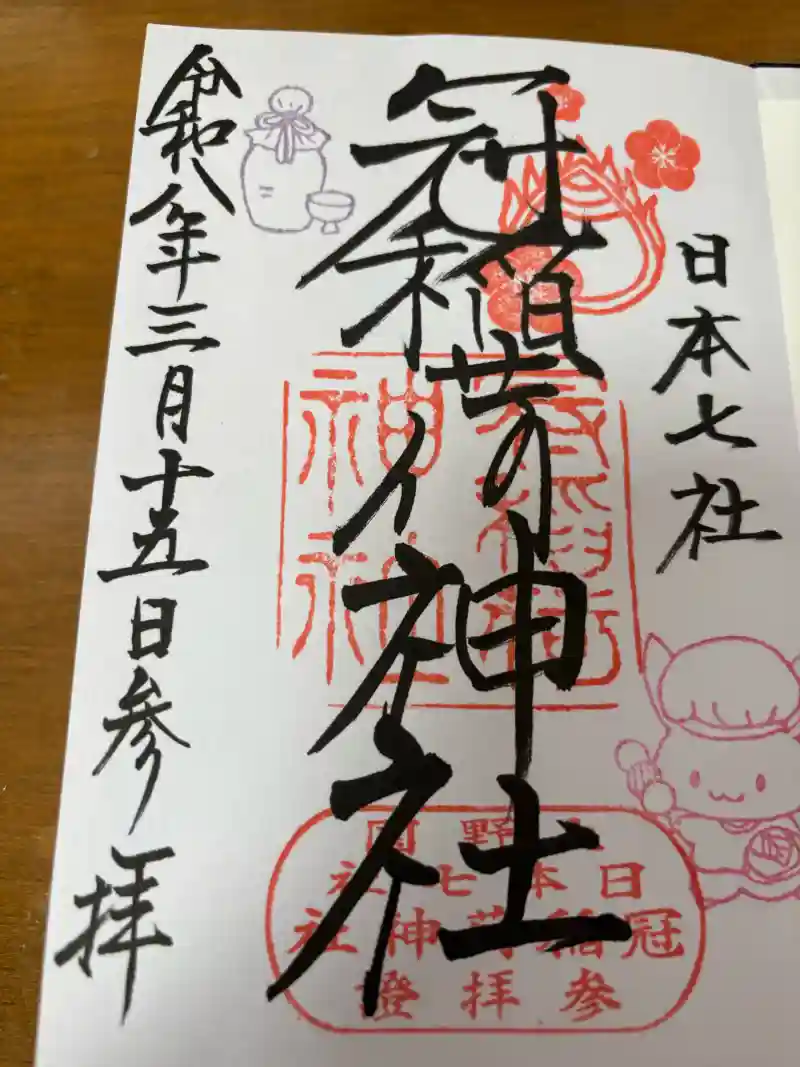 日本七社
冠稲荷神社
冠稲荷
神社
上野国
日本七社
冠稲荷神社
参拝證
令和八年三月十五日参拝